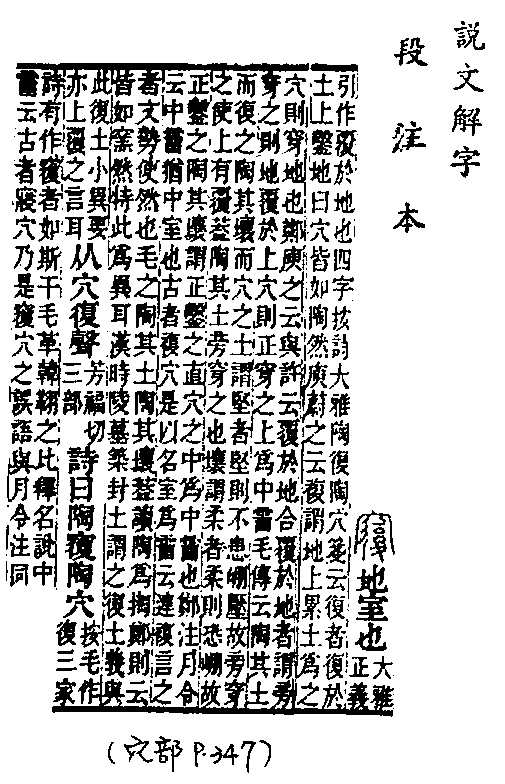 説文解字
段注本
𥨍 地室也 大雅
正義
引作覆於地也四字按詩大雅陶復陶穴箋云復者復於
土上鑿地曰穴皆如陶然庾蔚之云複謂地上累土爲之
穴則穿地也鄭庾之云與許云覆於地合覆於地者謂旁
穿之則地覆於上穴則正穿之上爲中霤毛傳云陶其土
而復之陶其壤而穴之土謂堅者堅則不患崩壓故旁穿
之使上有覆葢陶其土旁穿之也壤謂柔者柔則恐崩故
正鑿之陶其壤謂正鑿之直穴之中爲中霤也鄭注月令
云中霤猶中室也古者複穴是以名室爲霤云連複言之
者文勢使然也毛之陶其土陶其壤葢讀陶爲掏鄭則云
皆如窯然特此爲異耳漢時陵墓築封土謂之復土義與
此復土小異要
亦上覆之言耳
从穴復聲 芳福切
三部
詩曰陶𥨍陶穴 按毛作
復三家
詩有作𥨍者如斯干毛革韓䩕之比釋名說中
霤云古者寢穴乃是𥨍穴之誤語與月令注同
(穴部 P.347)